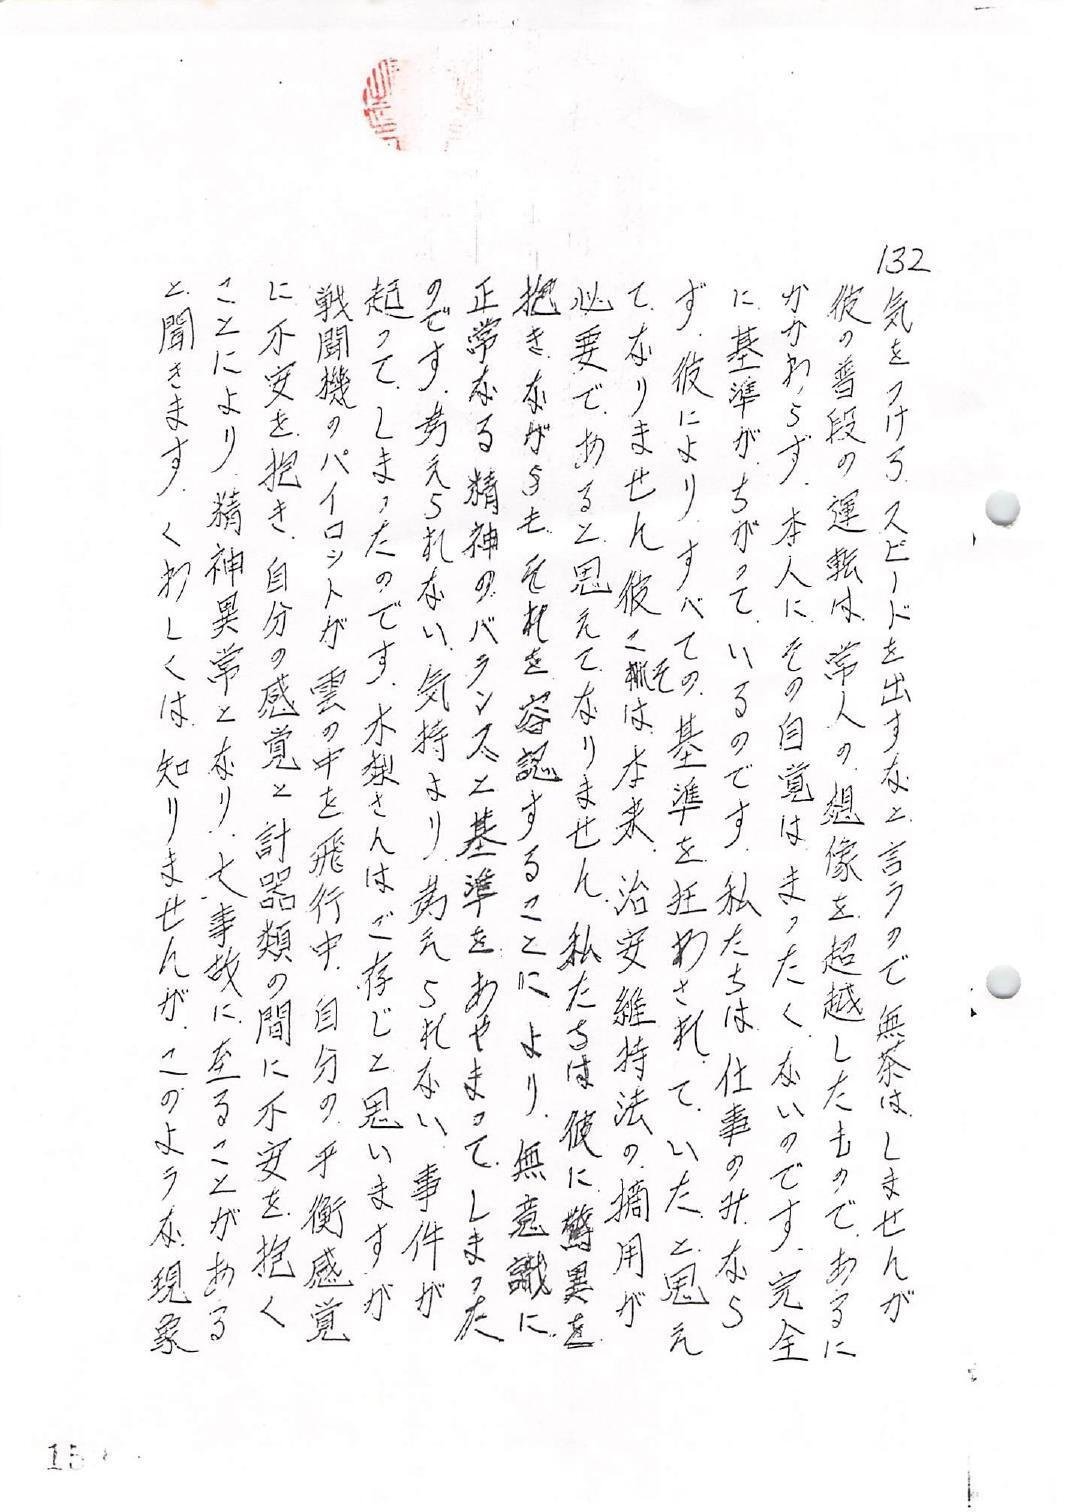 132
気をつけろ、スピードを出すなと言うので無茶はしませんが
彼の普段の運転は、常人の想像を超越したものであるに
かかわらず、本人にその自覚はまったくないのです、完全
に基準がちがっているのです、私たちは仕事のみなら
ず、彼によりすべての基準を狂わされていたと思え
てなりません彼こそは本来、治安維持法の摘用が
必要であると思えてなりません、私たちは彼に驚異を
抱きながらもそれを容認することにより、無意識に
正常なる精神のバランスと基準をあやまってしまった
のです、考えられない気持より、考えられない、事件が
起ってしまったのです、水梨さんはご存じと思いますが
戦闘機のパイロットが雲の中を飛行中、自分の平衡感覚
に不安を抱き、自分の感覚と計器類の間に不安を抱く
ことにより、精神異常となり、大事故に至ることがある
と聞きます、くわしくは知りませんが、このような現象
15